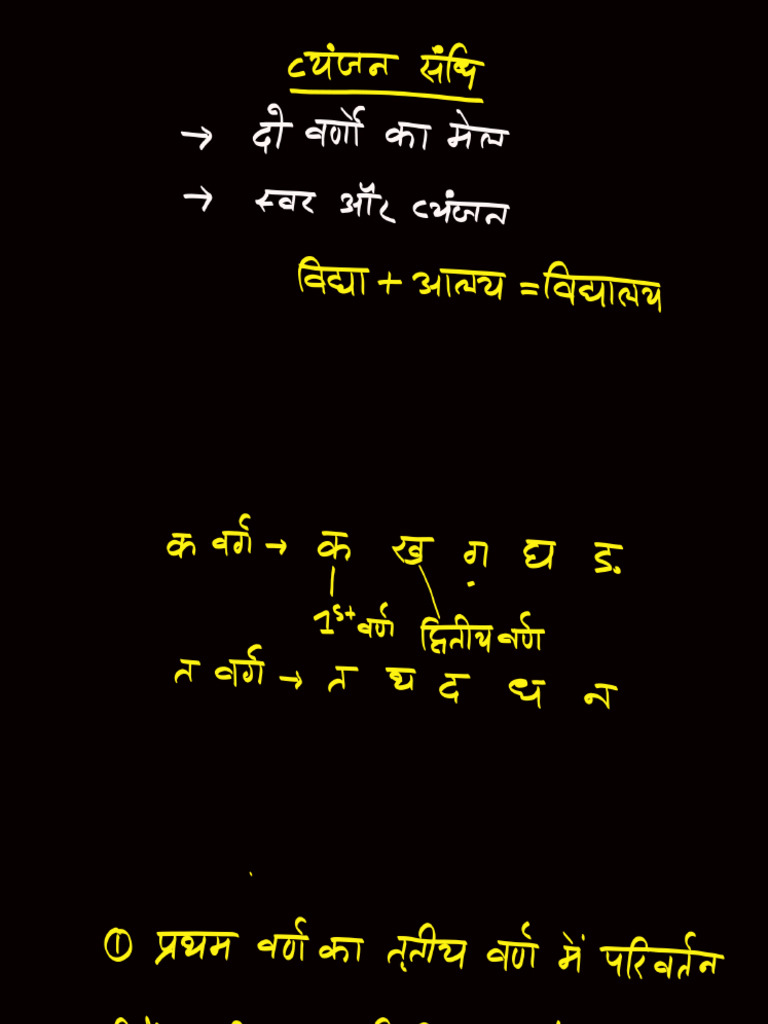 व्यंजन संधि
→ दो वर्णों का मेल
→ स्वर और व्यंजन
विद्या + आलय = विद्यालय
क वर्ग → क ख ग़ घ ङ
1st वर्ण द्वितीय वर्ण
त वर्ग → त थ द ध न
① प्रथम वर्ण का तृतीय वर्ण में परिवर्तन